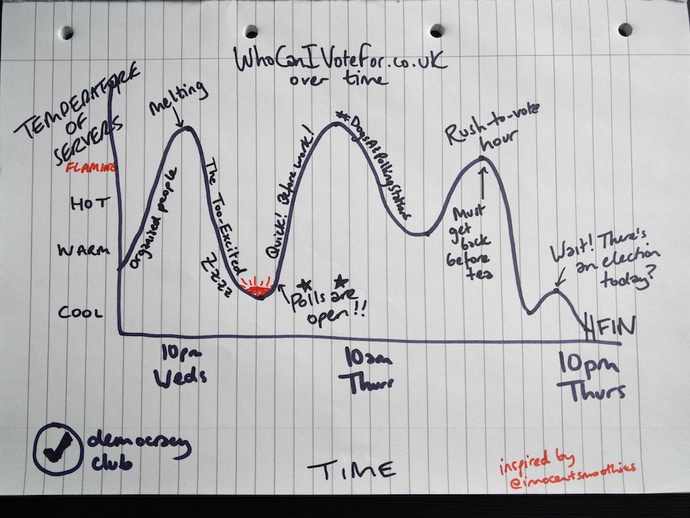 WhoCanIVoteFor.co.uk
over time
TEMPERATURE
OF
SERVERS
FLAMING
HOT
WARM
COOL
Organised people
Melting
The Too-Excited
Zzzzz
Quick! Before work!
Polls are
open!!
#DogsAtPollingStations
Rush-to-vote
hour
Must
get
back
before
tea
Wait! There's
an election
today?
FIN
10pm
Weds
10am
Thurs
10pm
Thurs
democracy
club
TIME
inspired by
@innocentsmoothies